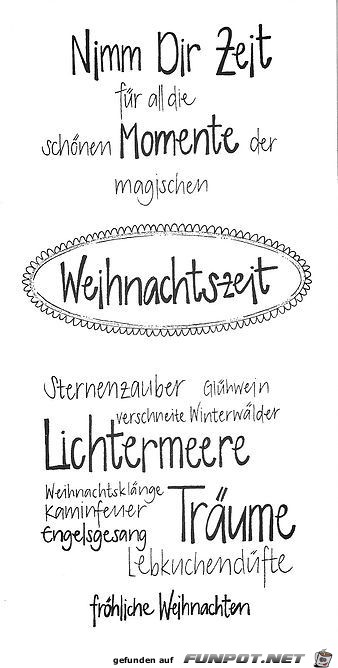 Nimm Dir Zeit
für all die
schönen Momente der
magischen
Weihnachtszeit
Sternenzauber Glühwein
verschneite Winterwälder
Lichtermeere
Weihnachtsklänge
Kaminfeuer Träume
Engelsgesang
Lebkuchendüfte
fröhliche Weihnachten
gefunden auf FUNPOT.NET